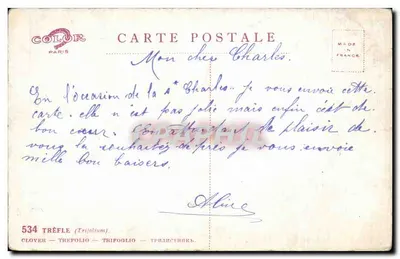 COLOR
PARIS
CARTE POSTALE
MADE
IN
FRANCE
Mon cher Charles.
En l'occasion de la St Charles je vous envoie cette
carte. elle n'est pas jolie mais enfin c'est de
bon cœur. En attendant le plaisir de
vous la souhaiter de près je vous envoie
mille bon baisers.
Aline
534 TRÈFLE (Trifolium)
CLOVER — TREFOLIO — TRIFOGLIO —